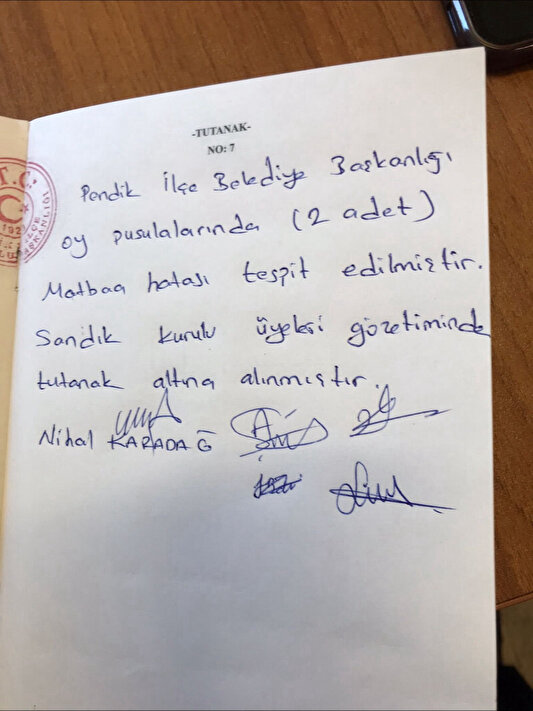 -TUTANAK-
NO: 7
Pendik İlçe Belediye Başkanlığı
oy pusulalarında (2 adet)
Matbaa hatası tespit edilmiştir.
Sandık kurulu üyeleri gözetiminde
tutanak altına alınmıştır.
Nihal KARADAĞ
T.C.
İLÇE
BAŞKANLIĞI